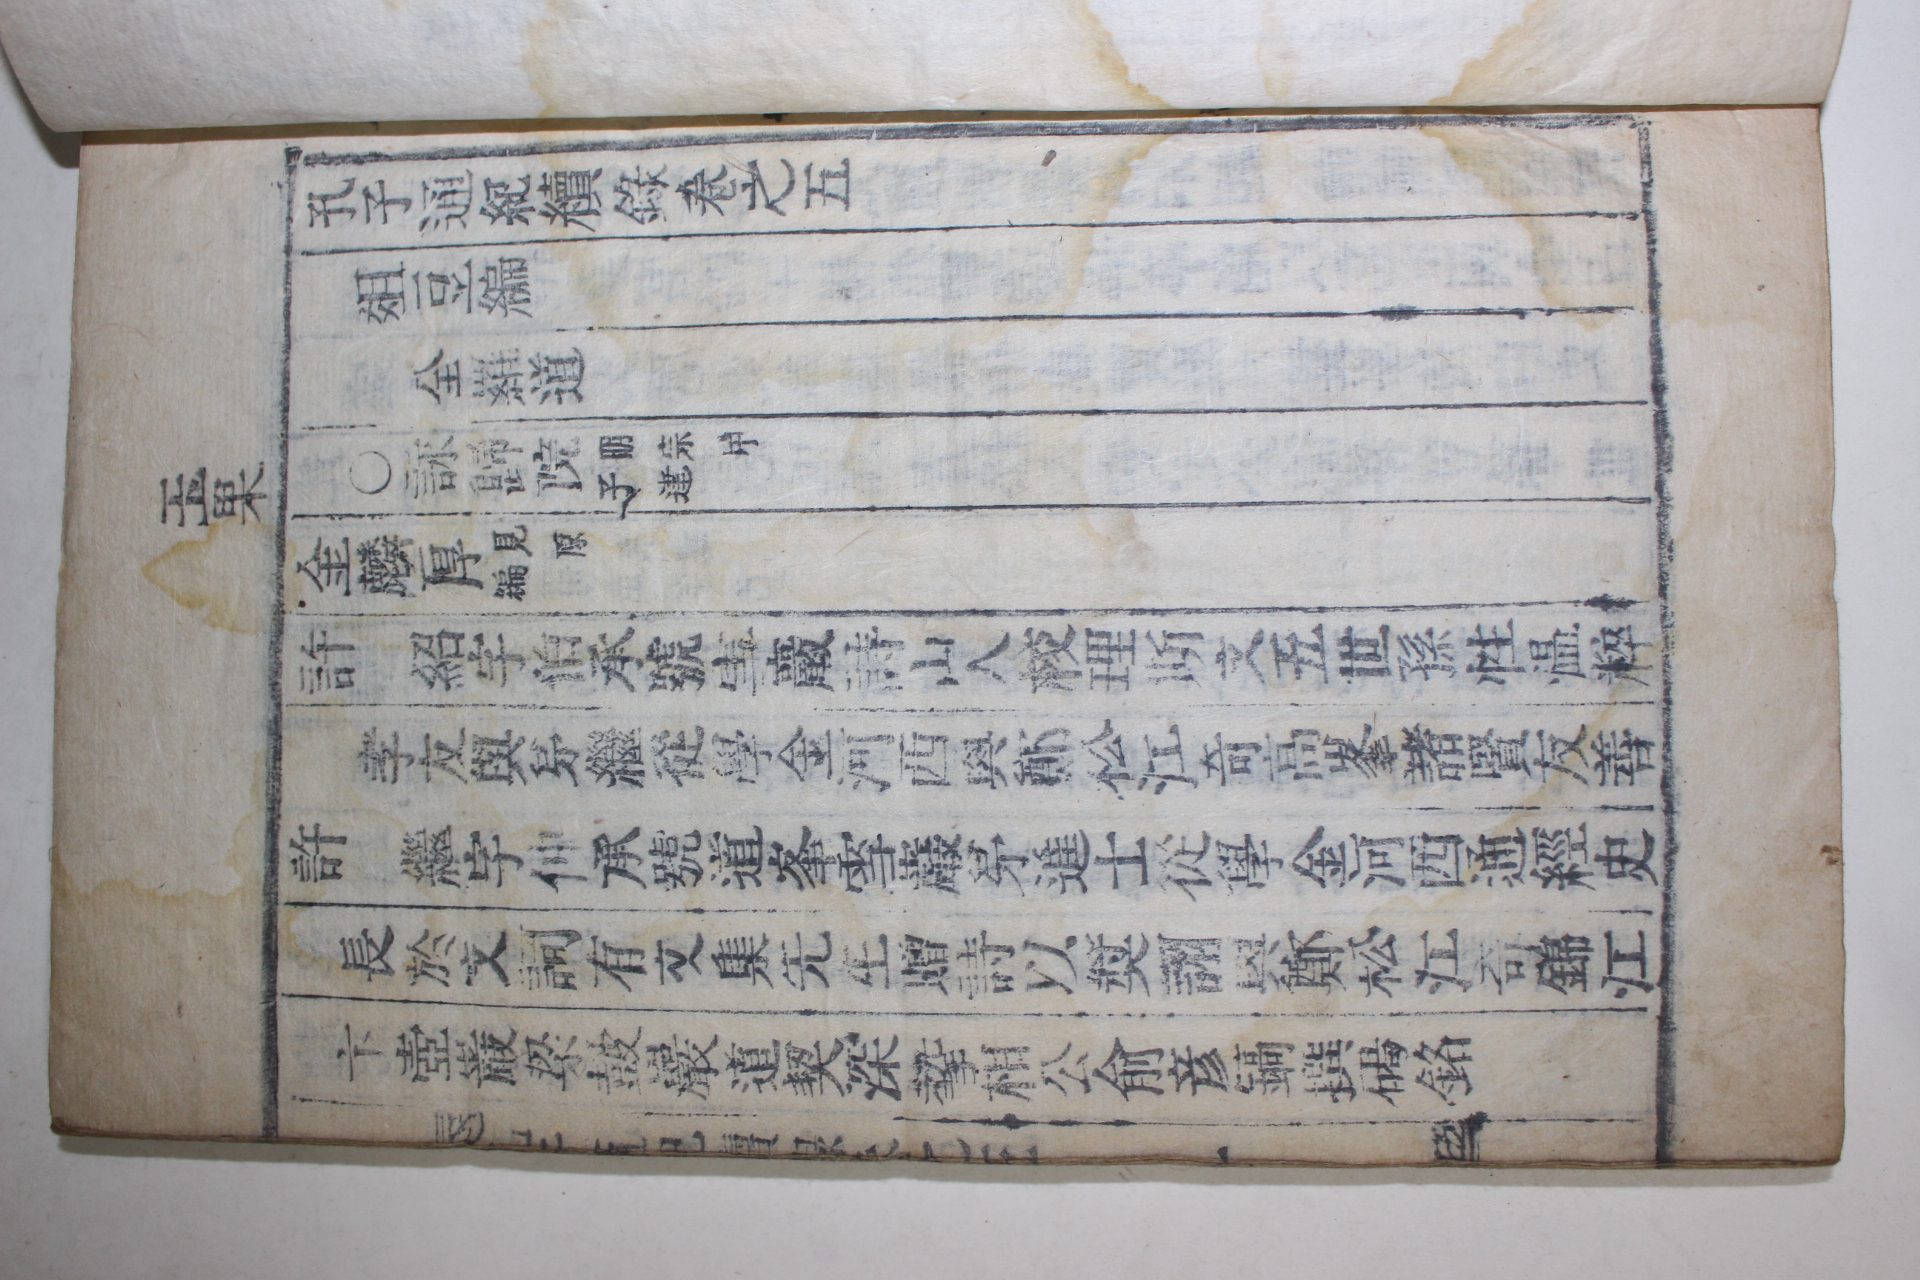 玉果
孔子通紀續錄卷之五
俎豆編
全羅道
○詠歸院 明宗甲子建
金麟厚 見原編
許 紹字伯承號雪巖詩山人校理斯文五世孫性温粹
孝友與弟繼從學金河西與鄭松江奇高峯諸賢友善
許 繼字仲承號道峯雪巖弟進士從學金河西通經史
長於文詞有文集先生贈詩以奬詡與鄭松江奇錦江
卞壺巖梁鼓巖道契深摯相公俞彦鎬撰碣銘